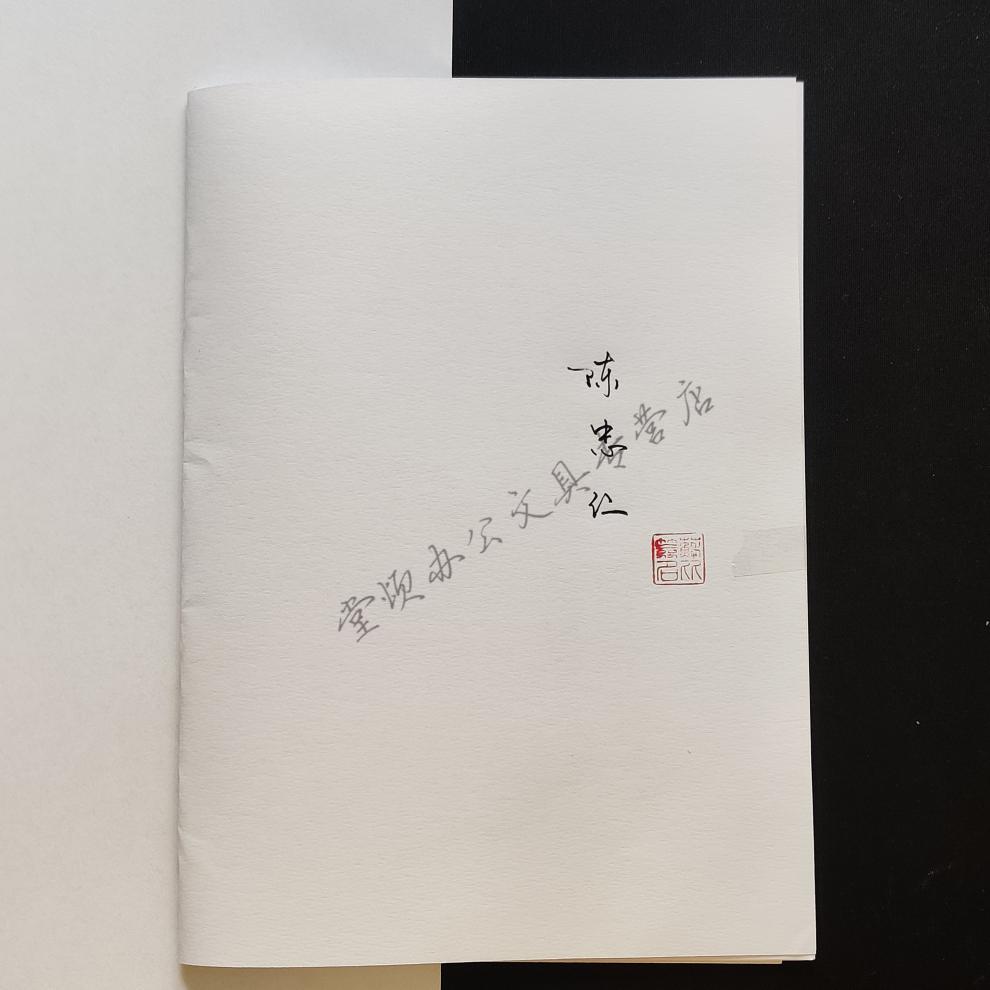 陈忠仁
堂颂办公文具经营店